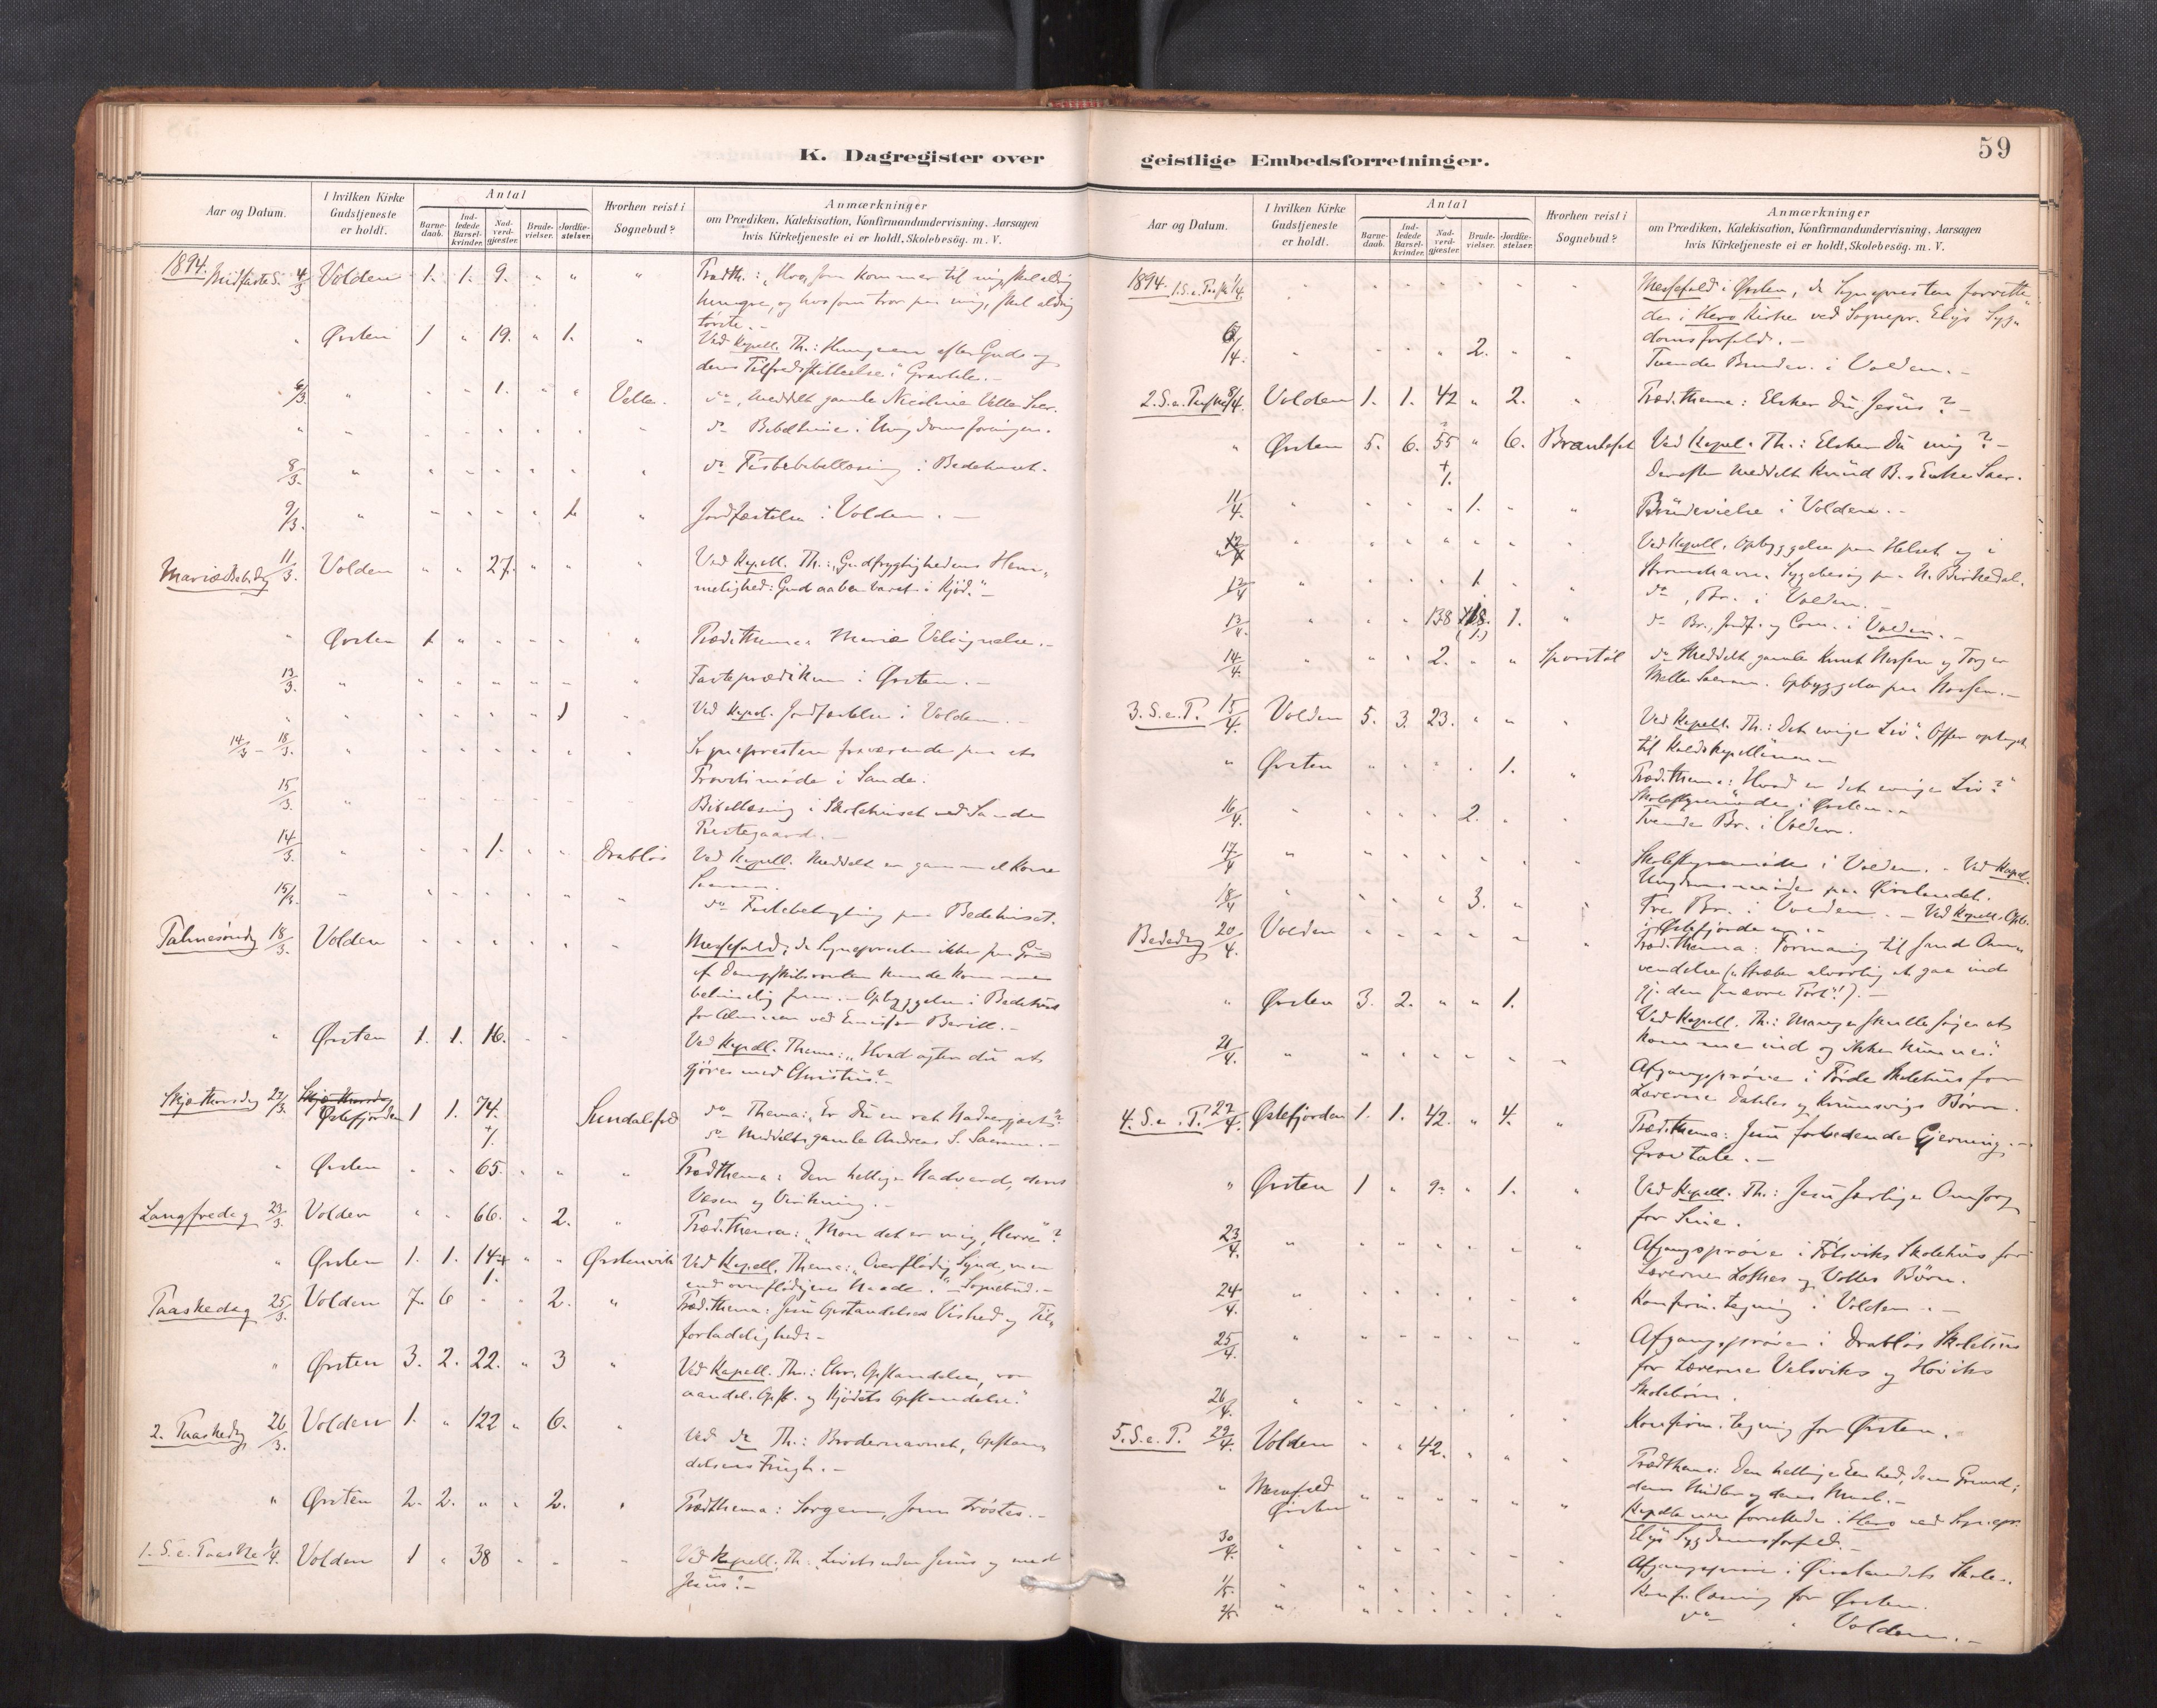 K. Dagregister over
Aar og Datum.
I hvilken Kirke Gudstjeneste er holdt.
Antal
Barne-daab.
Ind-ledede Barsel-kvinder.
Nad-verd-gjæster.
Brude-vielser.
Jordfæ-stelser.
Hvorhen reist i Sognebud?
Anmærkninger
om Prædiken, Katekisation, Konfirmandundervisning. Aarsagen
hvis Kirketjeneste ei er holdt, Skolebesög. m. V.
1894. Midfaste S. 4/3 Volden 1. 1. 9. " " " Prædth.: "Hvo, som kommer til mig, skal aldrig
hungre, og hvo som tror paa mig, skal aldrig
törste. -
" Örsten 1 " 19. " 1. " Ved Kapell. Th.: Hungeren efter Gud og
dens Tilfredsstillelse." Gravtale. -
6/3 " " " 1. " " Velle. do, meddelt gamle Nicoline Velle Sacr.
" " " " " " " " do Bibeltime i Ungdomsforeningen.
8/3 " " " " " " " do Fastebibellæsning i Bedehuset.
9/3. " " " " " 1. " Jordfæstelse i Volden. -
Mariæ Beb.dag 11/3. Volden " " 27. " " " Ved Kapell. Th.: "Gudfrygtighedens Hem-
melighed: Gud aabenbaret i Kjöd." -
" Örsten 1 " " " " " Præd.thema: Mariæ Velsignelse. -
13/3. " " " " " " " Fasteprædiken i Örsten. -
" " " " " " 1 " Ved Kapel. Jordfæstelse i Volden. -
14/3 - 18/3. " " " " " " " Sognepresten fraværende paa et
Provstimöde i Sande.
15/3. " Bibellæsning i Skolehuset ved Sande
Prestegaard. -
14/3. " " " 1. " " Drablös Ved Kapell. Meddelt en gammel Kone
Sacram.
15/3. " " " " " " " do Fastebetragtning paa Bedehuset.
Palmesöndag 18/3. Volden " " " " " " Messefald, da Sognepresten ikke paa Grund
af Dampskibsruten kunde komme
betimelig frem. - Opbyggelse i Bedehuset
for Almuen ved Emissær
" Örsten 1. 1. 16. " " Ved Kapell. Thema: "Hvad agter du at
gjöre med Christus?" -
Skjærthorsdag 22/3. Østefjorden 1 1. 74. + 1. Sundalsfold do Thema: "Er du en ret Nadvergjæst?"
do Meddelt gamle Andreas S. Sacram. -
" Örsten " " 65. " " " Prædthema: Den hellige Nadverd, dens
Væsen og Virkning. -
Langfredag 23/3. Volden " " 66. " 2. " Præd.thema: "Mon det er mig, Herre"?
" Örsten 1. 1. 14 + 1. " " Örstenvik Ved Kapell. Thema: "Overflödig Synd, men
end overflödigere Naade." - Sognebud. -
Paaskedag 25/3. Volden 7. 6 " " 2. " Præd.thema: Jesu Opstandelses Vished og Til-
forladelighed. -
" Örsten 3. 2. 22. " 3 " Ved Kapell. Th.: Chr. Opstandelse, vor
aandel. Opst. og Kjödets Opstandelse."
2. Paaskedag 26/3. Volden 1. " 122 " 6. " Ved do Th.: Brodernavnet, Opstan-
delsens Frugt. -
" Örsten 2. 2. " " 2. " Prædthema: Sorgen, som tröstes. -
1. S. e. Paaske 1/4. Volden 1 " 38 " " " Ved Kapell. Th. Livet uden Jesus og med
Jesus? -
59
geistlige Embedsforretninger.
Aar og Datum.
I hvilken Kirke Gudstjeneste er holdt.
Antal
Barne-daab.
Ind-ledede Barsel-kvinder.
Nad-verd-gjæster.
Brude-vielser.
Jordfæ-stelser.
Hvorhen reist i Sognebud?
Anmærkninger
om Prædiken, Katekisation, Konfirmandundervisning. Aarsagen
hvis Kirketjeneste ei er holdt, Skolebesög. m. V.
1894. 1. S. e. Paaske 1/4. " " " " " " " Messefald i Örsten, da Sognepresten forrette-
de i Herö Kirke ved Sognepr. Elys Syg-
domsforfald. -
6/4. " " " " 2. " " Tvende Brudev. i Volden. -
2. S. e. Paaske 8/4. Volden 1. 1. 42 " 2. " Præd.thema: Elsker du Jesus? -
" Örsten 5. 6. 55 + 1. " 6. Brauteset Ved Kapel. Th.: Elsker du mig? -
Derefter meddelt Knud B.s Enke Sacr.
11/4. " " " " 1. " " Brudevielse i Volden. -
12/4 " " " " " " " Ved Kapell. Opbyggelse paa Helset og i
Sygebesög paa N. Birkedal.
12/4 " " " " 1. " " do, Br. i Volden. -
13/4. " " " 138 1. " do Br., Jordf. og Com. i Volden. -
14/4. " " " 2. " " Sporstöl do Meddelt gamle
Sacram. Opbyggelse paa
3. S. e. P. 15/4. Volden 5. 3. 23. " " " Ved Kapell. Th.: Det evige Liv." Offer optaget
til Kaldskapellanen -
" Örsten " " " " 1. " Præd.thema: Hvad er det evige Liv?"
Skolestyremöde i Örsten. -
16/4. " " " " 2. " " Tvende Br. i Volden.
17/4 " " " " " " " Skolestyremöde i Volden. - Ved Kapel.
Ungdomsmöde paa
18/4 " " " " 3. " " Tre Br. i Volden. - Ved Kapell. Opb.
i Østefjorden. -
Bededag 20/4. Volden " " " " " " Præd.thema: Formaning til sand Om-
vendelse (: Stræber alvorlig at gaa ind
gj. den snævre Port"!). -
" Örsten 3. 2. " " 1. " Ved Kapell. Th.: Mange skulle söge at
komme ind og ikke kunne."
21/4. " " " " " " " Afgangspröve i Förde Skolehus for
Lærerne Dahles og Börn.
4. S. e. P. 22/4. Østefjorden 1. 1. 42. " 4. " Præd.thema: Jesu forbedende Gjerning. -
Gravtale. -
" Örsten 1 " 9. " 1. " Ved Kapell. Th.: Jesu kjærlige Omsorg
for Sine.
23/4. " " " " " " " Afgangspröve i Fölsviks Skolehus for
Lærerne og Velles Börn.
24/4. " " " " " " " Konfirm.tegning i Volden. -
25/4. " " " " " " " Afgangspröve i Drablös Skolehus
for Lærerne Velsviks og Höviks
Skolebörn.
26/4. " " " " " " " Konfirm. tegning for Örsten.
5. S. e. P. 29/4. Volden " " 42. " " " Prædthema: Den hellige Eenhed, dens Grund,
dens Midler og dens Maal. -
" Messefald Örsten " " " " " " Kapellanen forrettede i Herö ved Sognepr.
Elys Sygdomsforfald. -
30/4. " " " " " " " Afgangspröve i Skole.
1/5. " " " " " " " Konf. læsning for Örsten.
2/5. " " " " " " " do " Volden. -